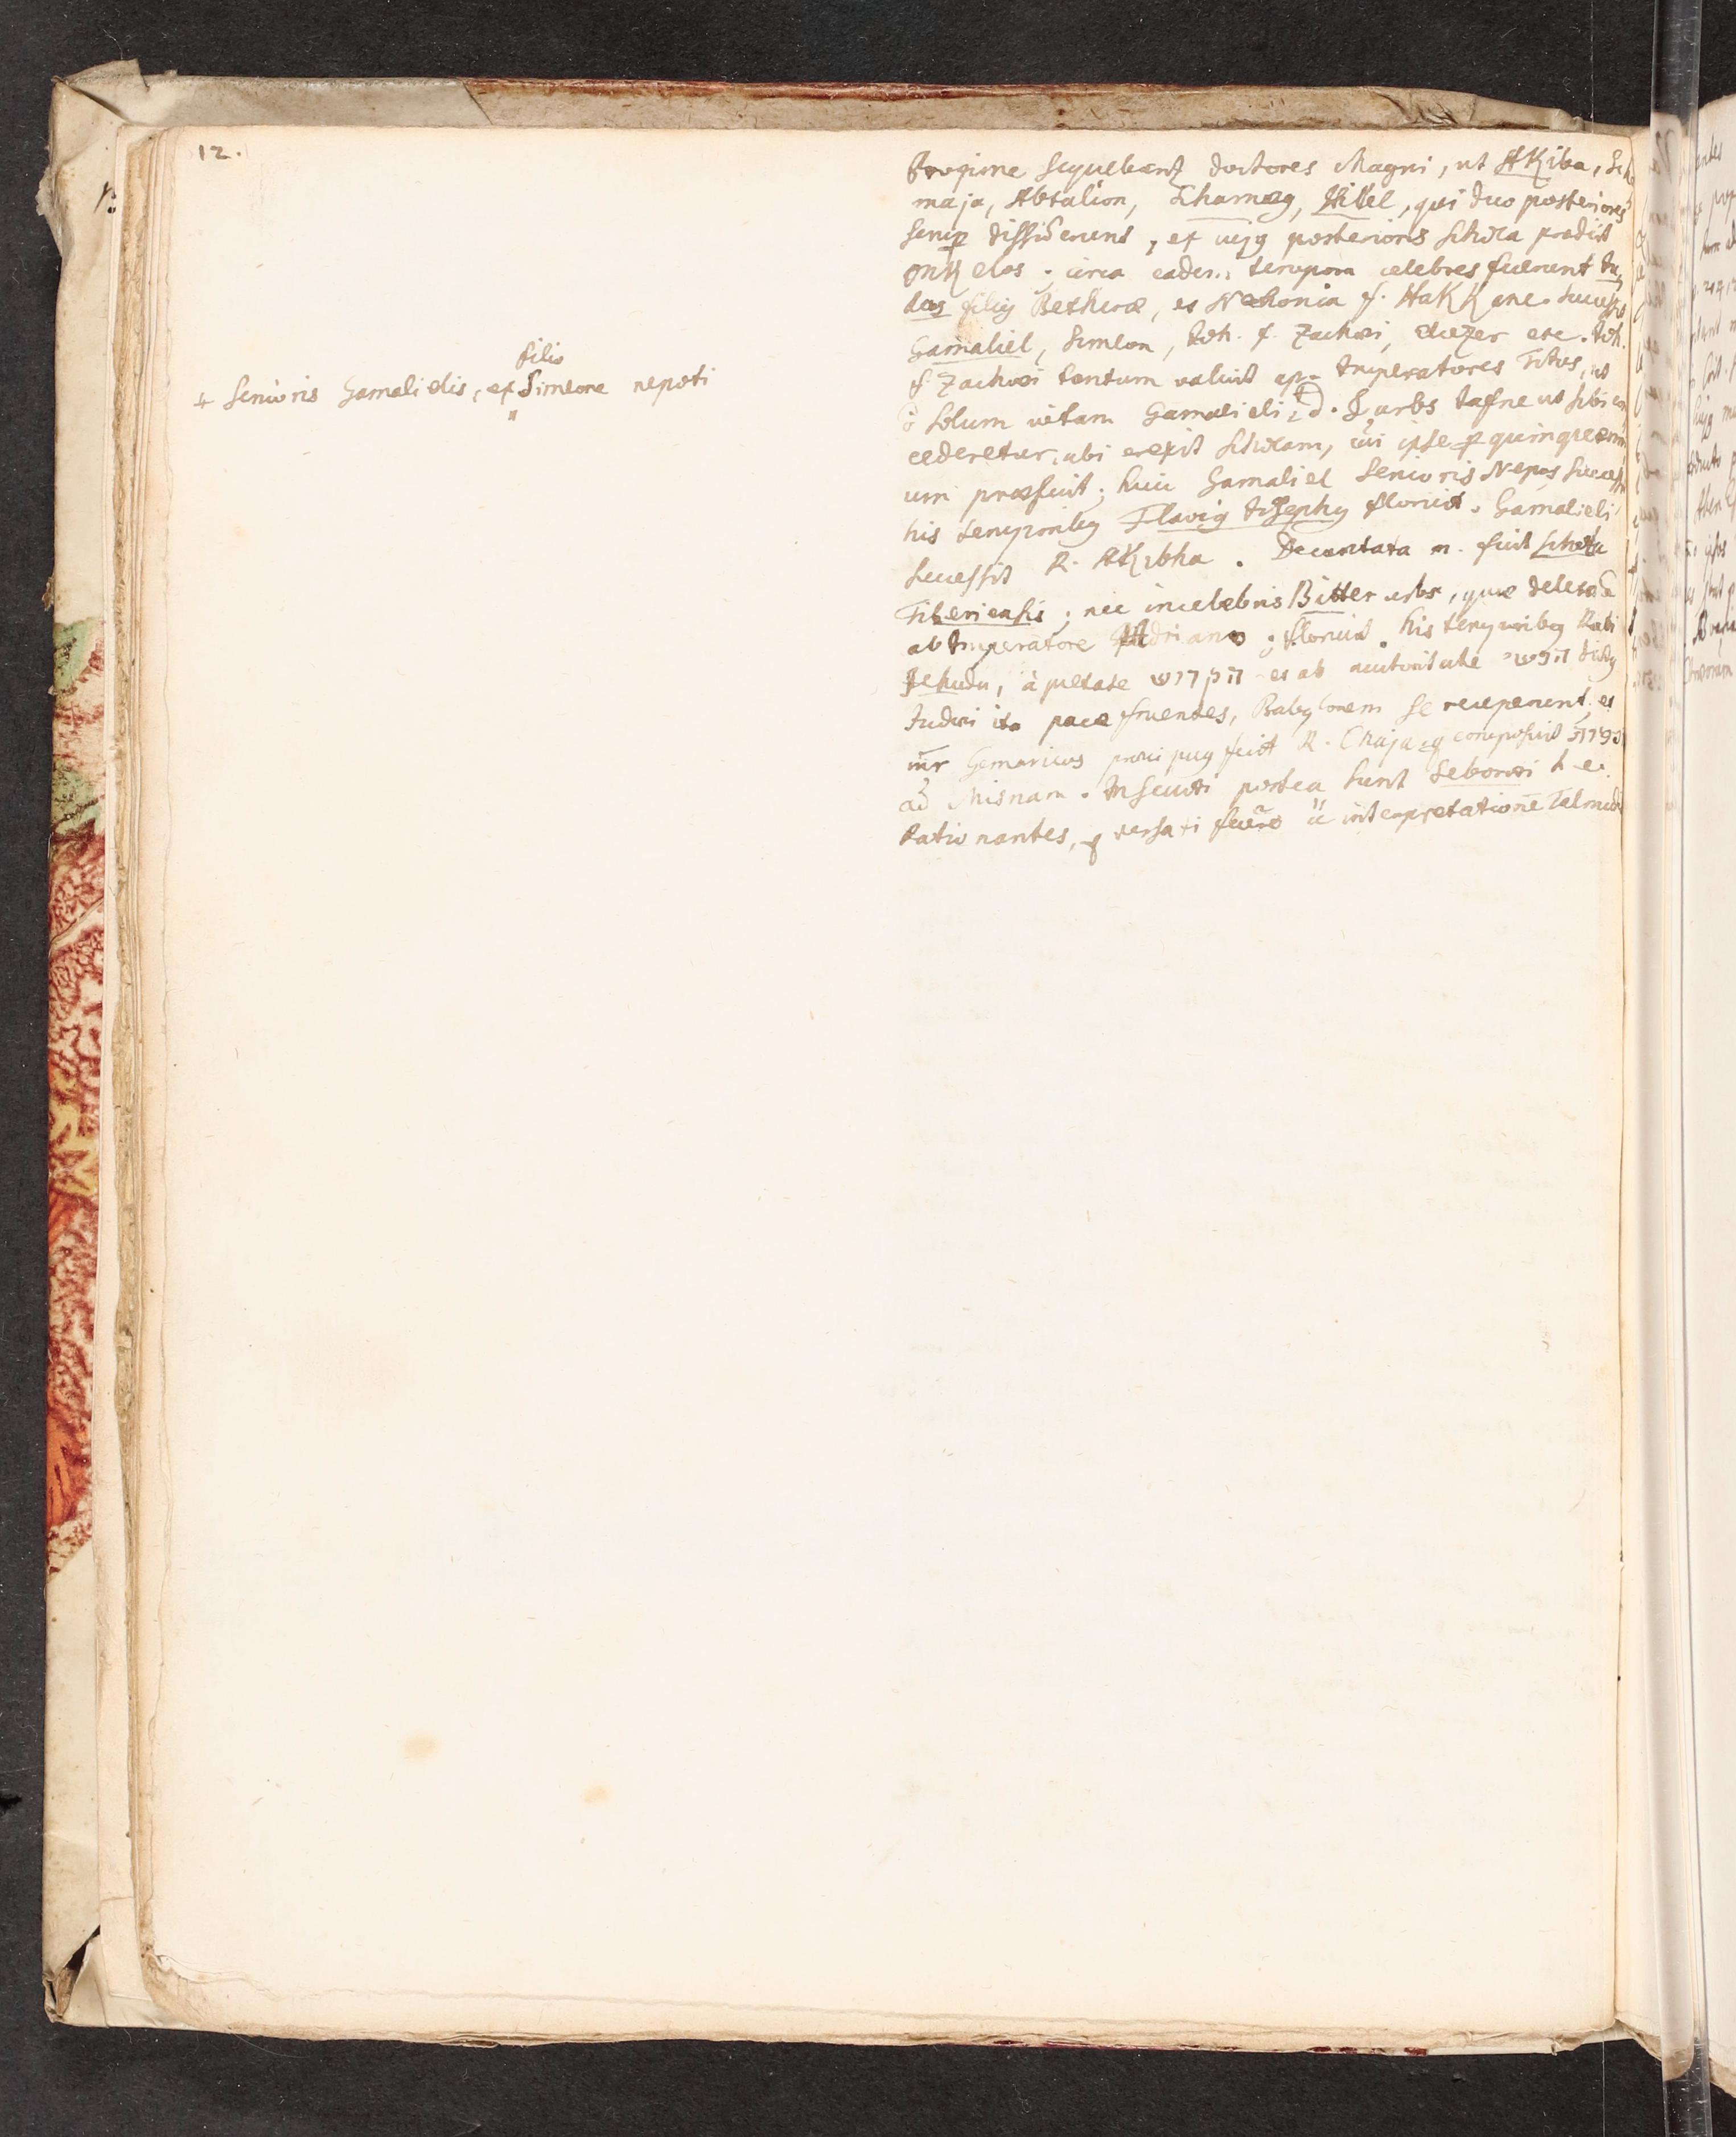 12.
filio
+ Senioris Gamalielis, ex Simeone nepoti
proxime sequebant doctores Magni, ut AKiba, Sche
maja, Abtalion, Schamaeg, Hillel, qui duo posteriores
semp dissiderunt, et ujg posterioris schola prodiit
onKelos; circa eadem tempora celebres fuerunt Ju
das filig Betherae, et Nehonia f. HaKKane. Success
Gamaliel, Simeon, Joh. f. Zachaei, eliezer etc. Joh.
f. Zachaei tantum valuit ap. Imperatores Titos, ut
solum vitam Gamalieli urbs Jafne ut sibi con
cederetur, ubi erexit scholam, cui ipse p quinquenni
um praefuit; huic Gamaliel Senioris Nepos success
his temporibg Flavig Josephg floruit. Gamalieli
successit R. AKibha. Decantata n. fuit schola
Tiberiensis; nec incelebris Bitter urbs, quae deleta e
ab Imperatore Adriano; floruit his temporibg Rabi
Jehuda, à pietate הקדוש et ab autoritate הנשיא dictg
Judaei ita pace fruentes, Babylonem se receperunt, et
inr Gemaricos praecipug fuit R. Chaja, q composuit
ad Misnam. Insecuti postea sunt Seboraei h. e.
Ratio nantes, q versati fuere ii interpretatione Talmudi